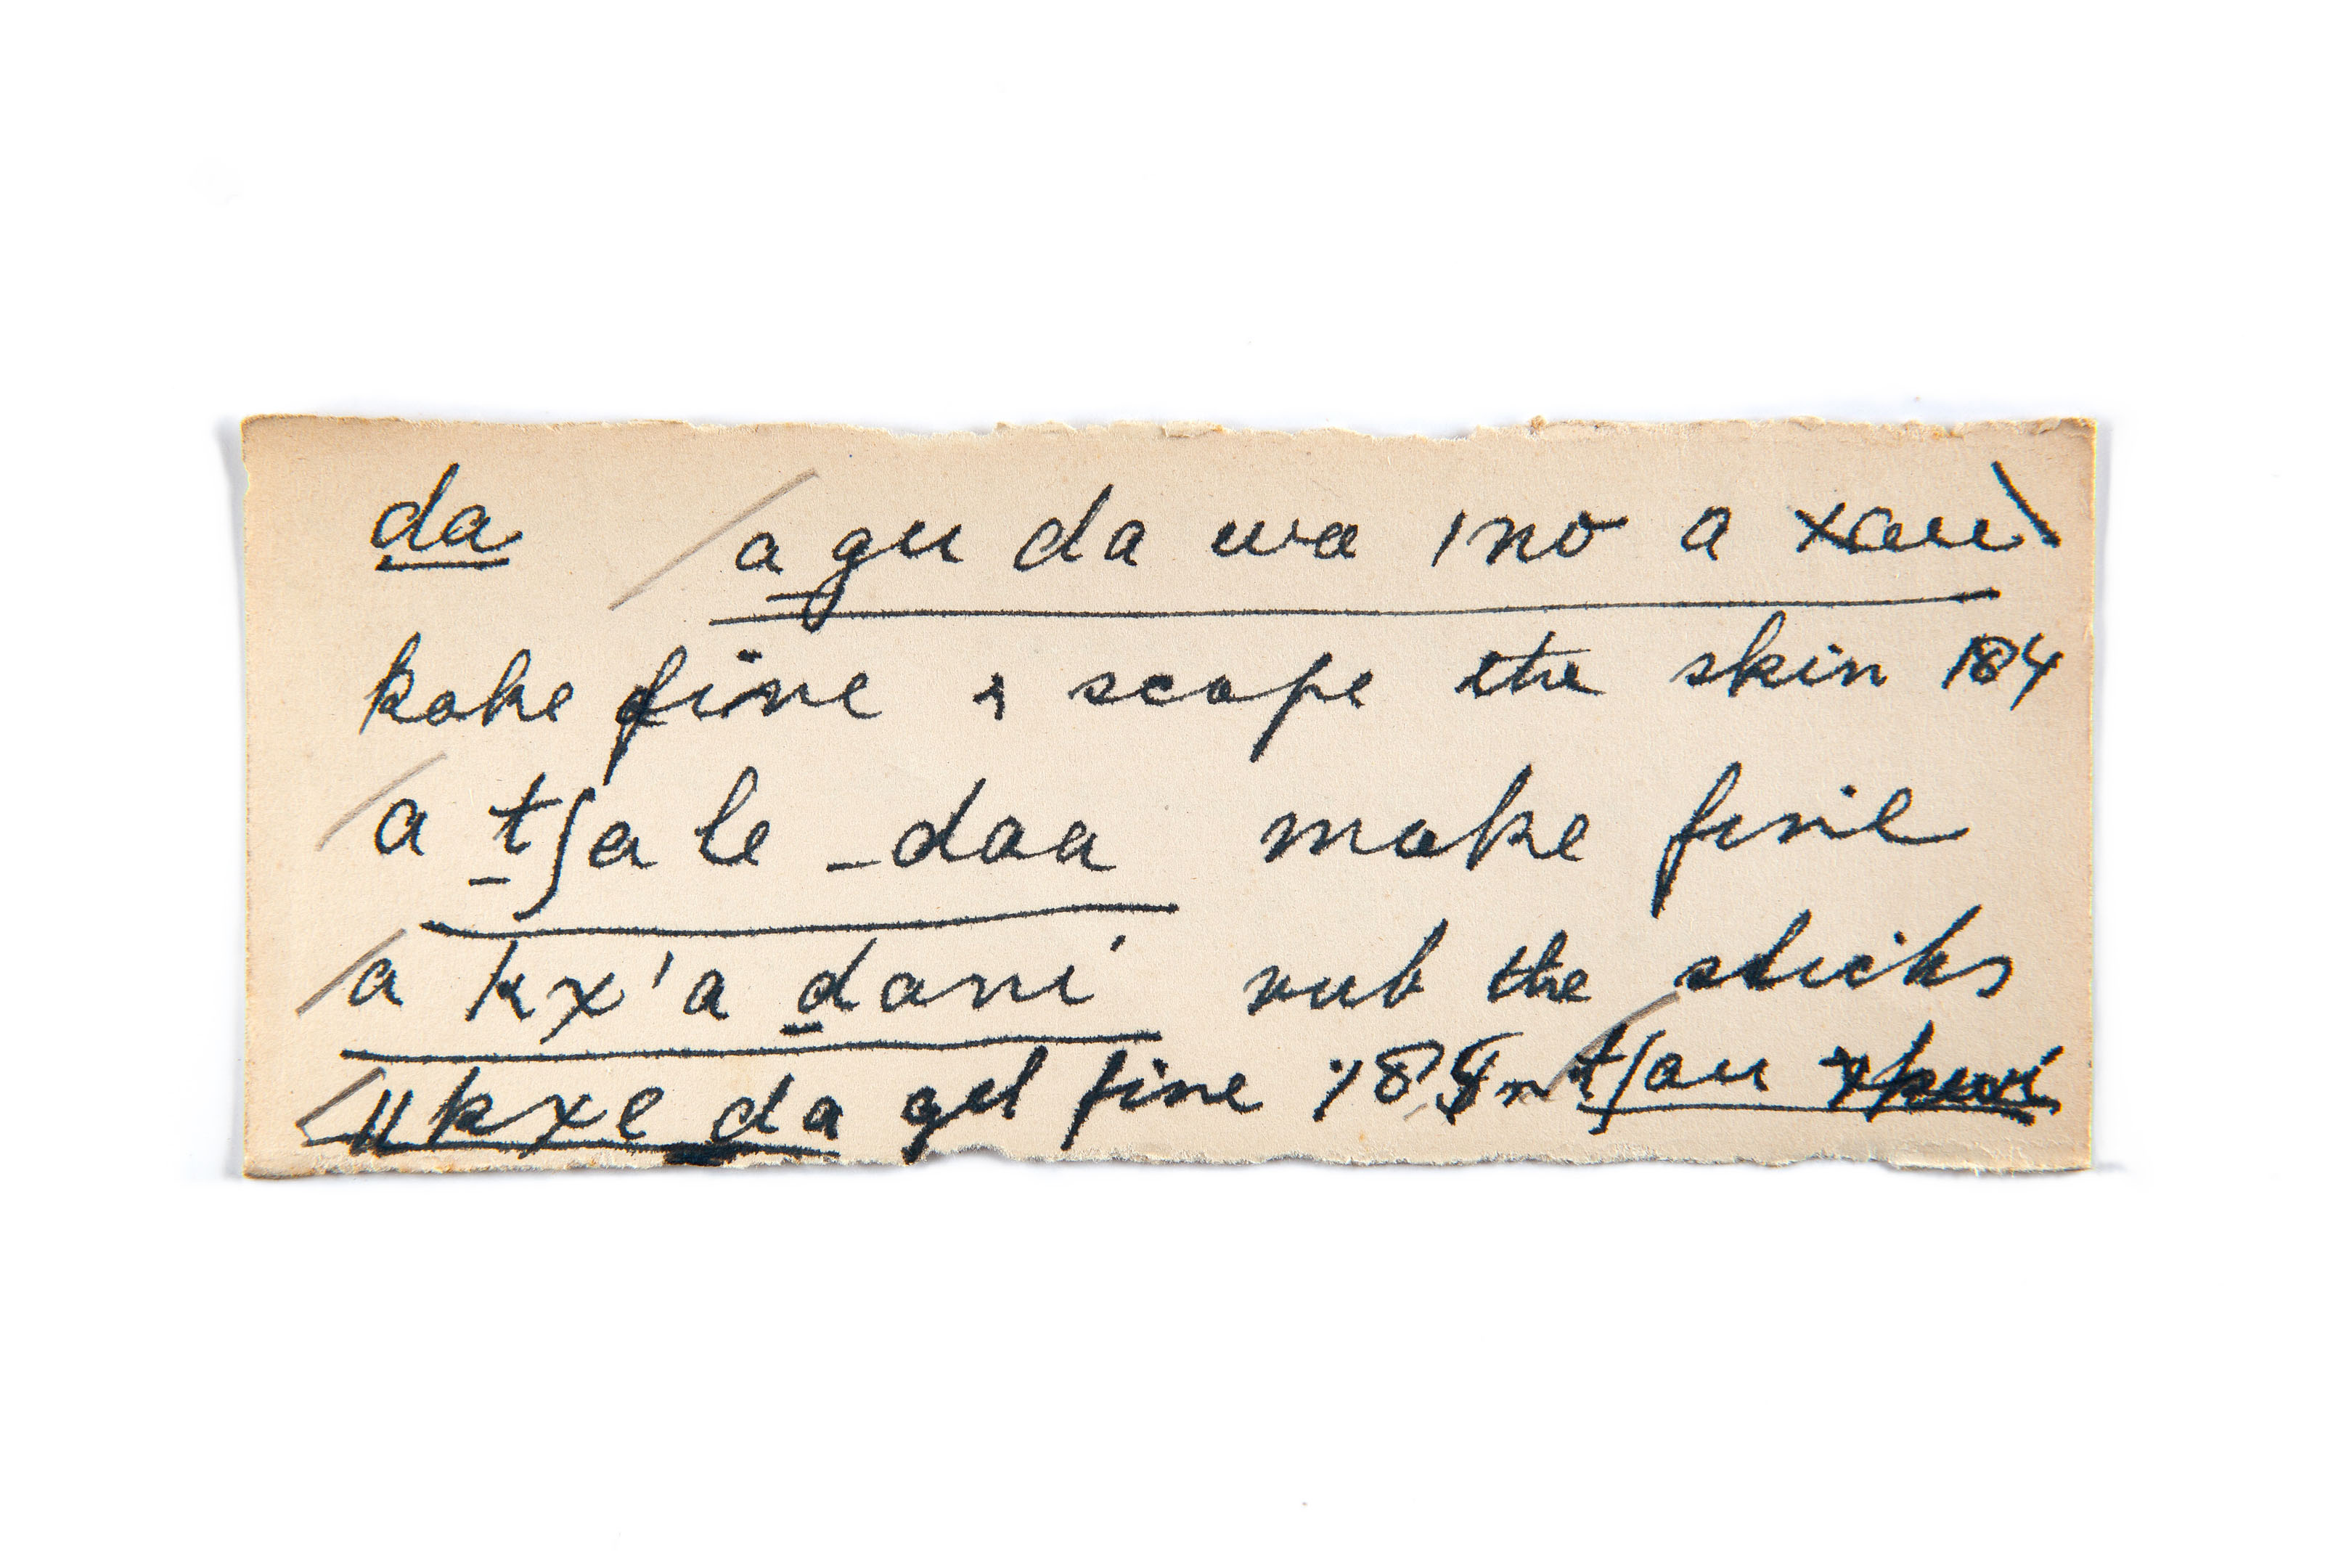 da a gu da wa ǀno a xau
kake fine & scope the skin 184
a tʃa le _daa make fine
a kx'a dani rub the sticks
ǁkxe da get fine 184 tʃau